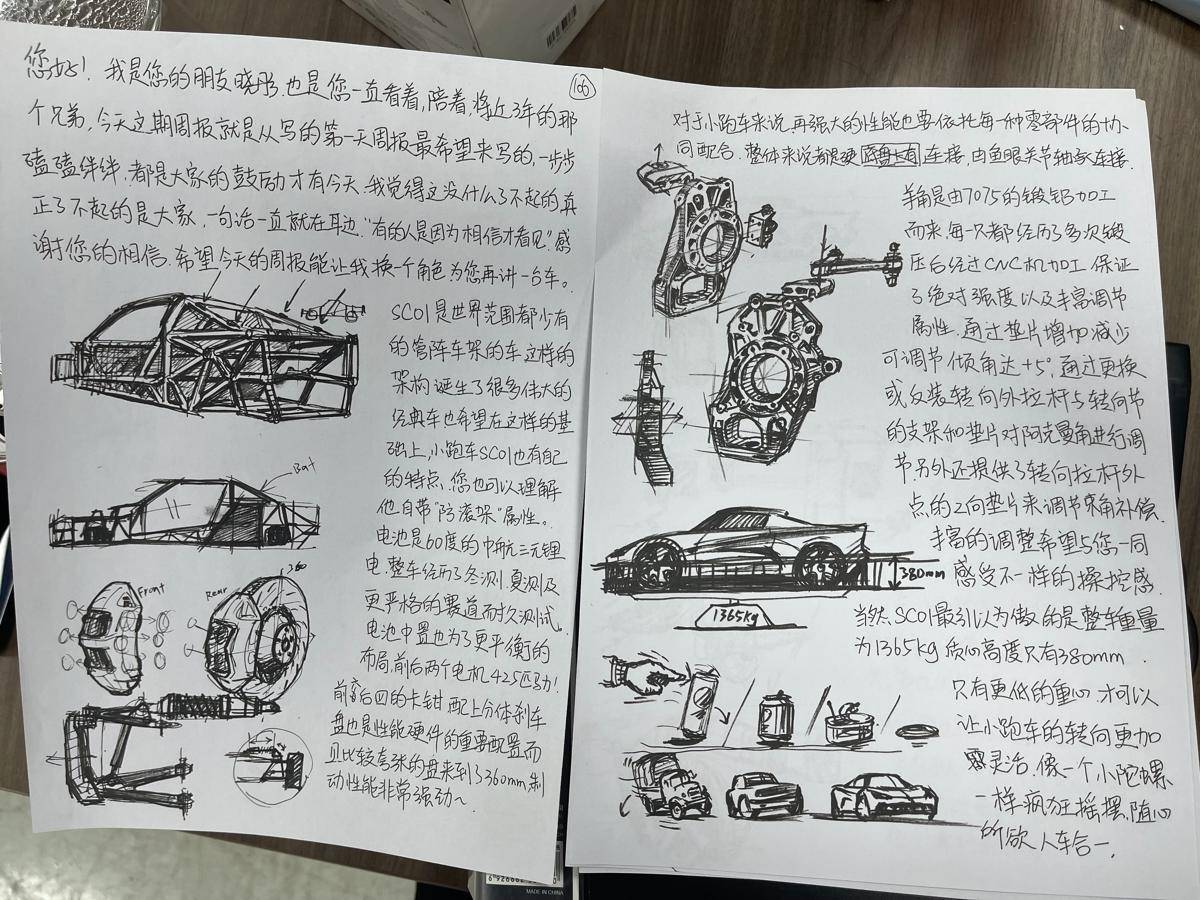 166
您好！我是您的朋友晓彤.也是您一直看着,陪着,将近3年的那
个兄弟,今天这期周报就是从写的第一天周报最希望来写的,一步步
磕磕绊绊.都是大家的鼓励才有今天.我觉得这没什么了不起的真
正了不起的是大家.一句话一直就在耳边:"有的人是因为相信才看见"感
谢您的相信.希望今天的周报能让我换一个角色为您再讲一台车。
SC01是世界范围都少有
的管阵车架的车这样的
架构诞生了很多伟大的
经典车也希望在这样的基
础上,小跑车SC01也有自己
的特点.您也可以理解
他自带"防滚架"属性。
Bat
电池是60度的中航三元锂
电.整车经历了冬测夏测及
更严格的赛道耐久测试。
电池中置也为了更平衡的
布局前后两个电机425匹马力!
Front
Rear
360
前后四的卡钳配上分体刹车
盘也是性能硬件的重要配置而
且比较夸张的盘来到了360mm.制
动性能非常强劲~
对于小跑车来说.再强大的性能也要依托每一种零部件的协
同配合.整体来说都是硬连接,由鱼眼关节轴承连接.
羊角是由7075的锻铝加工
而来.每一只都经历了多次锻
压后经过CNC机加工.保证
了绝对强度以及丰富调节
属性.通过垫片增加减少
可调节倾角达+5°.通过更换
或反装转向外拉杆与转向节
的支架和垫片对阿克曼角进行调
节.另外还提供了转向拉杆外
点的Z向垫片来调节束角补偿.
丰富的调整希望与您一同
感受不一样的操控感.
380mm
1365kg
当然.SC01最引以为傲的是整车重量
为1365kg 质心高度只有380mm.
只有更低的重心.才可以
让小跑车的转向更加
灵活.像一个小陀螺
一样.疯狂摇摆.随心
所欲.人车合一.
MADE IN CHINA